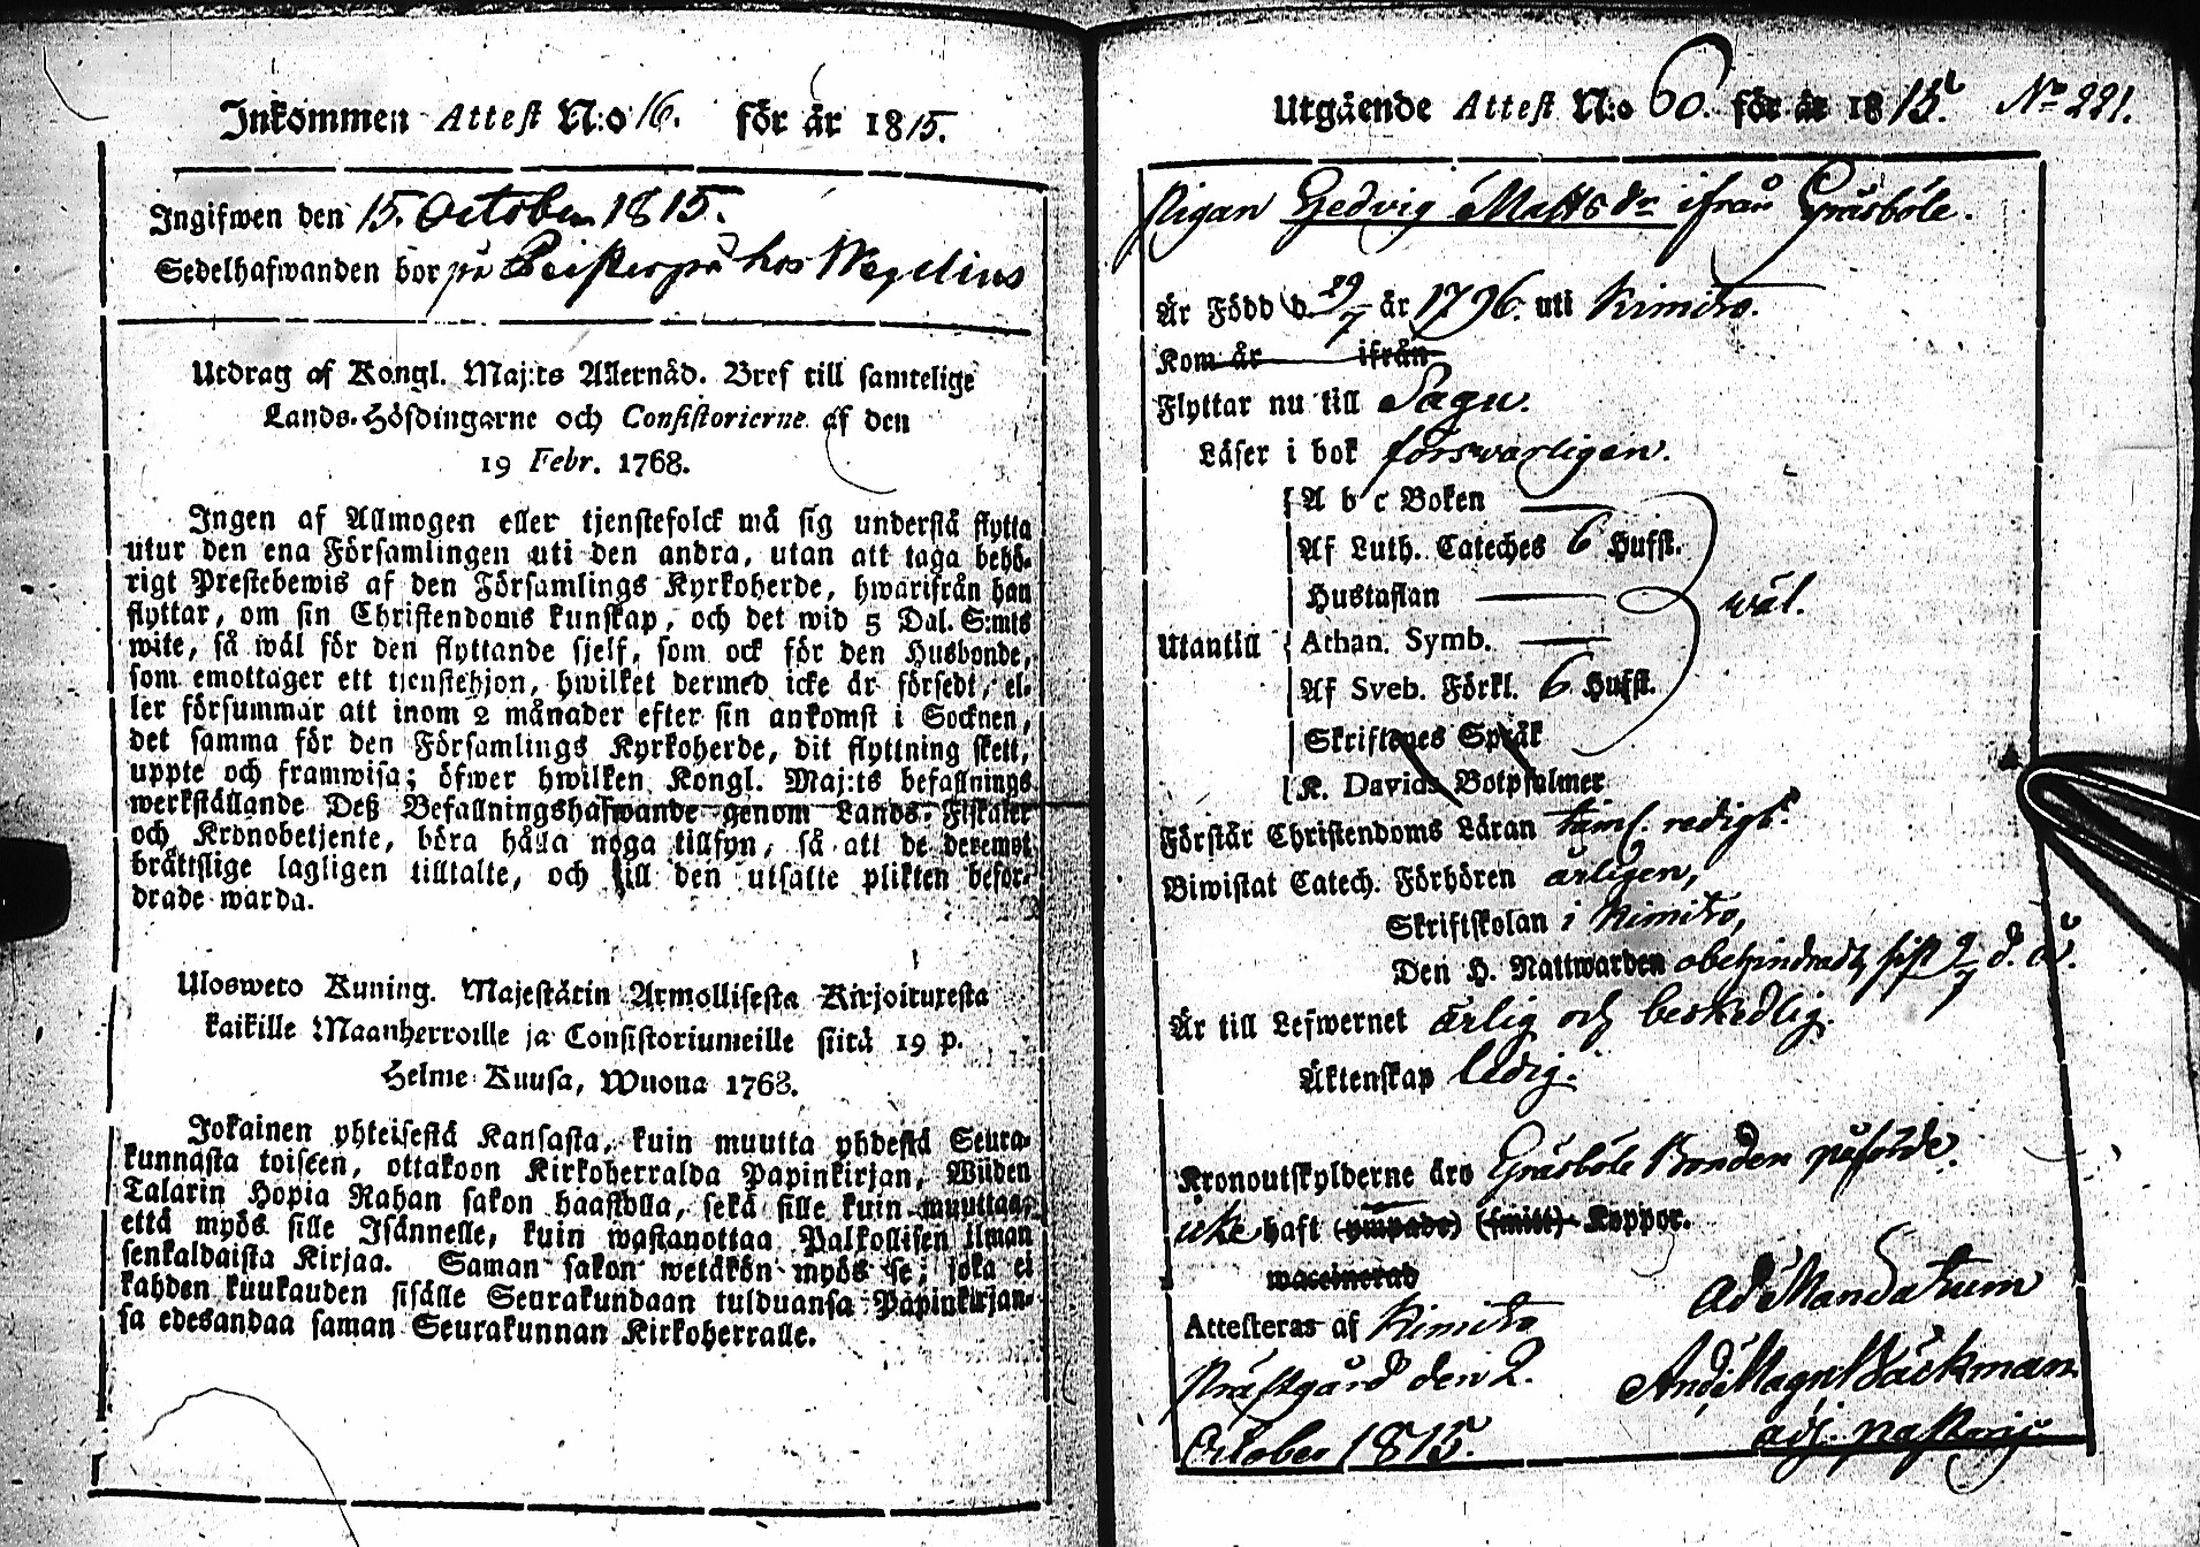 Inkommen Attest N:o 16. för år 1815.
Ingifwen den 15. October 1815.
Sedelhafwanden bor på hos Wegelius
Utdrag af Kongl. Maj:ts Allernåd. Bref till samtelige
Lands-Höfdingarne och Consistorierne af den
19 Febr. 1768.
Ingen af Allmogen eller tjenstefolck må sig understå flytta
utur den ena Församlingen uti den andra, utan att taga behö-
rigt Prestebewis af den Församlings Kyrkoherde, hwarifrån han
flyttar, om sin Christendoms kunskap, och det wid 5 Dal. S:mts
wite, så wäl för den flyttande sjelf, som ock för den Husbonde,
som emottager ett tjenstehjon, hwilket dermed icke är försedt, el-
ler försummar att inom 2 månader efter sin ankomst i Socknen,
det samma för den Församlings Kyrkoherde, dit flyttning skett,
uppte och framwisa; öfwer hwilken Kongl. Maj:ts befallnings
werkställande Deß Befallningshafwande genom Lands-Fiskaler
och Kronobetjente, böra hålla noga tillsyn, så att de deremot
brättslige lagligen tilltalte, och till den utsatte plikten befor-
drade warda.
Ulosweto Kuning. Majestätin Armollisesta Kirjoituxesta
kaikille Maanherroille ja Consistoriumeille siitä 19 p.
Helme Kuusa, Wuona 1768.
Jokainen yhteisestä Kansasta, kuin muutta yhdestä Seura-
kunnasta toiseen, ottakoon Kirkoherralda Papinkirjan, Wiiden
Talarin Hopia Rahan sakon haastolla, sekä sille kuin muuttaa,
että myös sille Isännelle, kuin wastanottaa Palkollisen ilman
senkaldaista Kirjaa. Saman sakon wetäkön myös se, joka ei
kahden kuukauden sisälle Seurakundaan tulduansa Papinkirjan-
sa edesandaa saman Seurakunnan Kirkoherralle.
Utgående Attest N:o 60. för år 1815. No 221.
Pigan Hedvig Matts dr ifrån Gräsböle.
Är Född d. 29/7 år 1796. uti Kimito.
Kom år ifrån
Flyttar nu till Sagu.
Läser i bok försvarligen.
A b c Boken
Af Luth. Cateches 6 Hufst.
Hustaflan wäl.
Utantill Athan. Symb.
Af Sveb. Förkl. 6 Hufst.
Skriftenes Språk
K. Davids Botpsalmer
Förstår Christendoms Läran täml. redigt.
Biwistat Catech. Förhören årligen,
Skriftskolan i Kimito,
Den H. Nattwarden obehindradt, sist 9/7 d. å.
Är till Lefwernet ärlig och beskedlig.
Äktenskap ledig.
Kronoutskylderne äro Gräsböle Bonden påförde.
icke haft (ympade) (smitt) Koppor.
waccinerad
Attesteras af Kimito Ad Mandatum
Prästgård den 2. And. Magn. Bäckman
October 1815. adj. past.